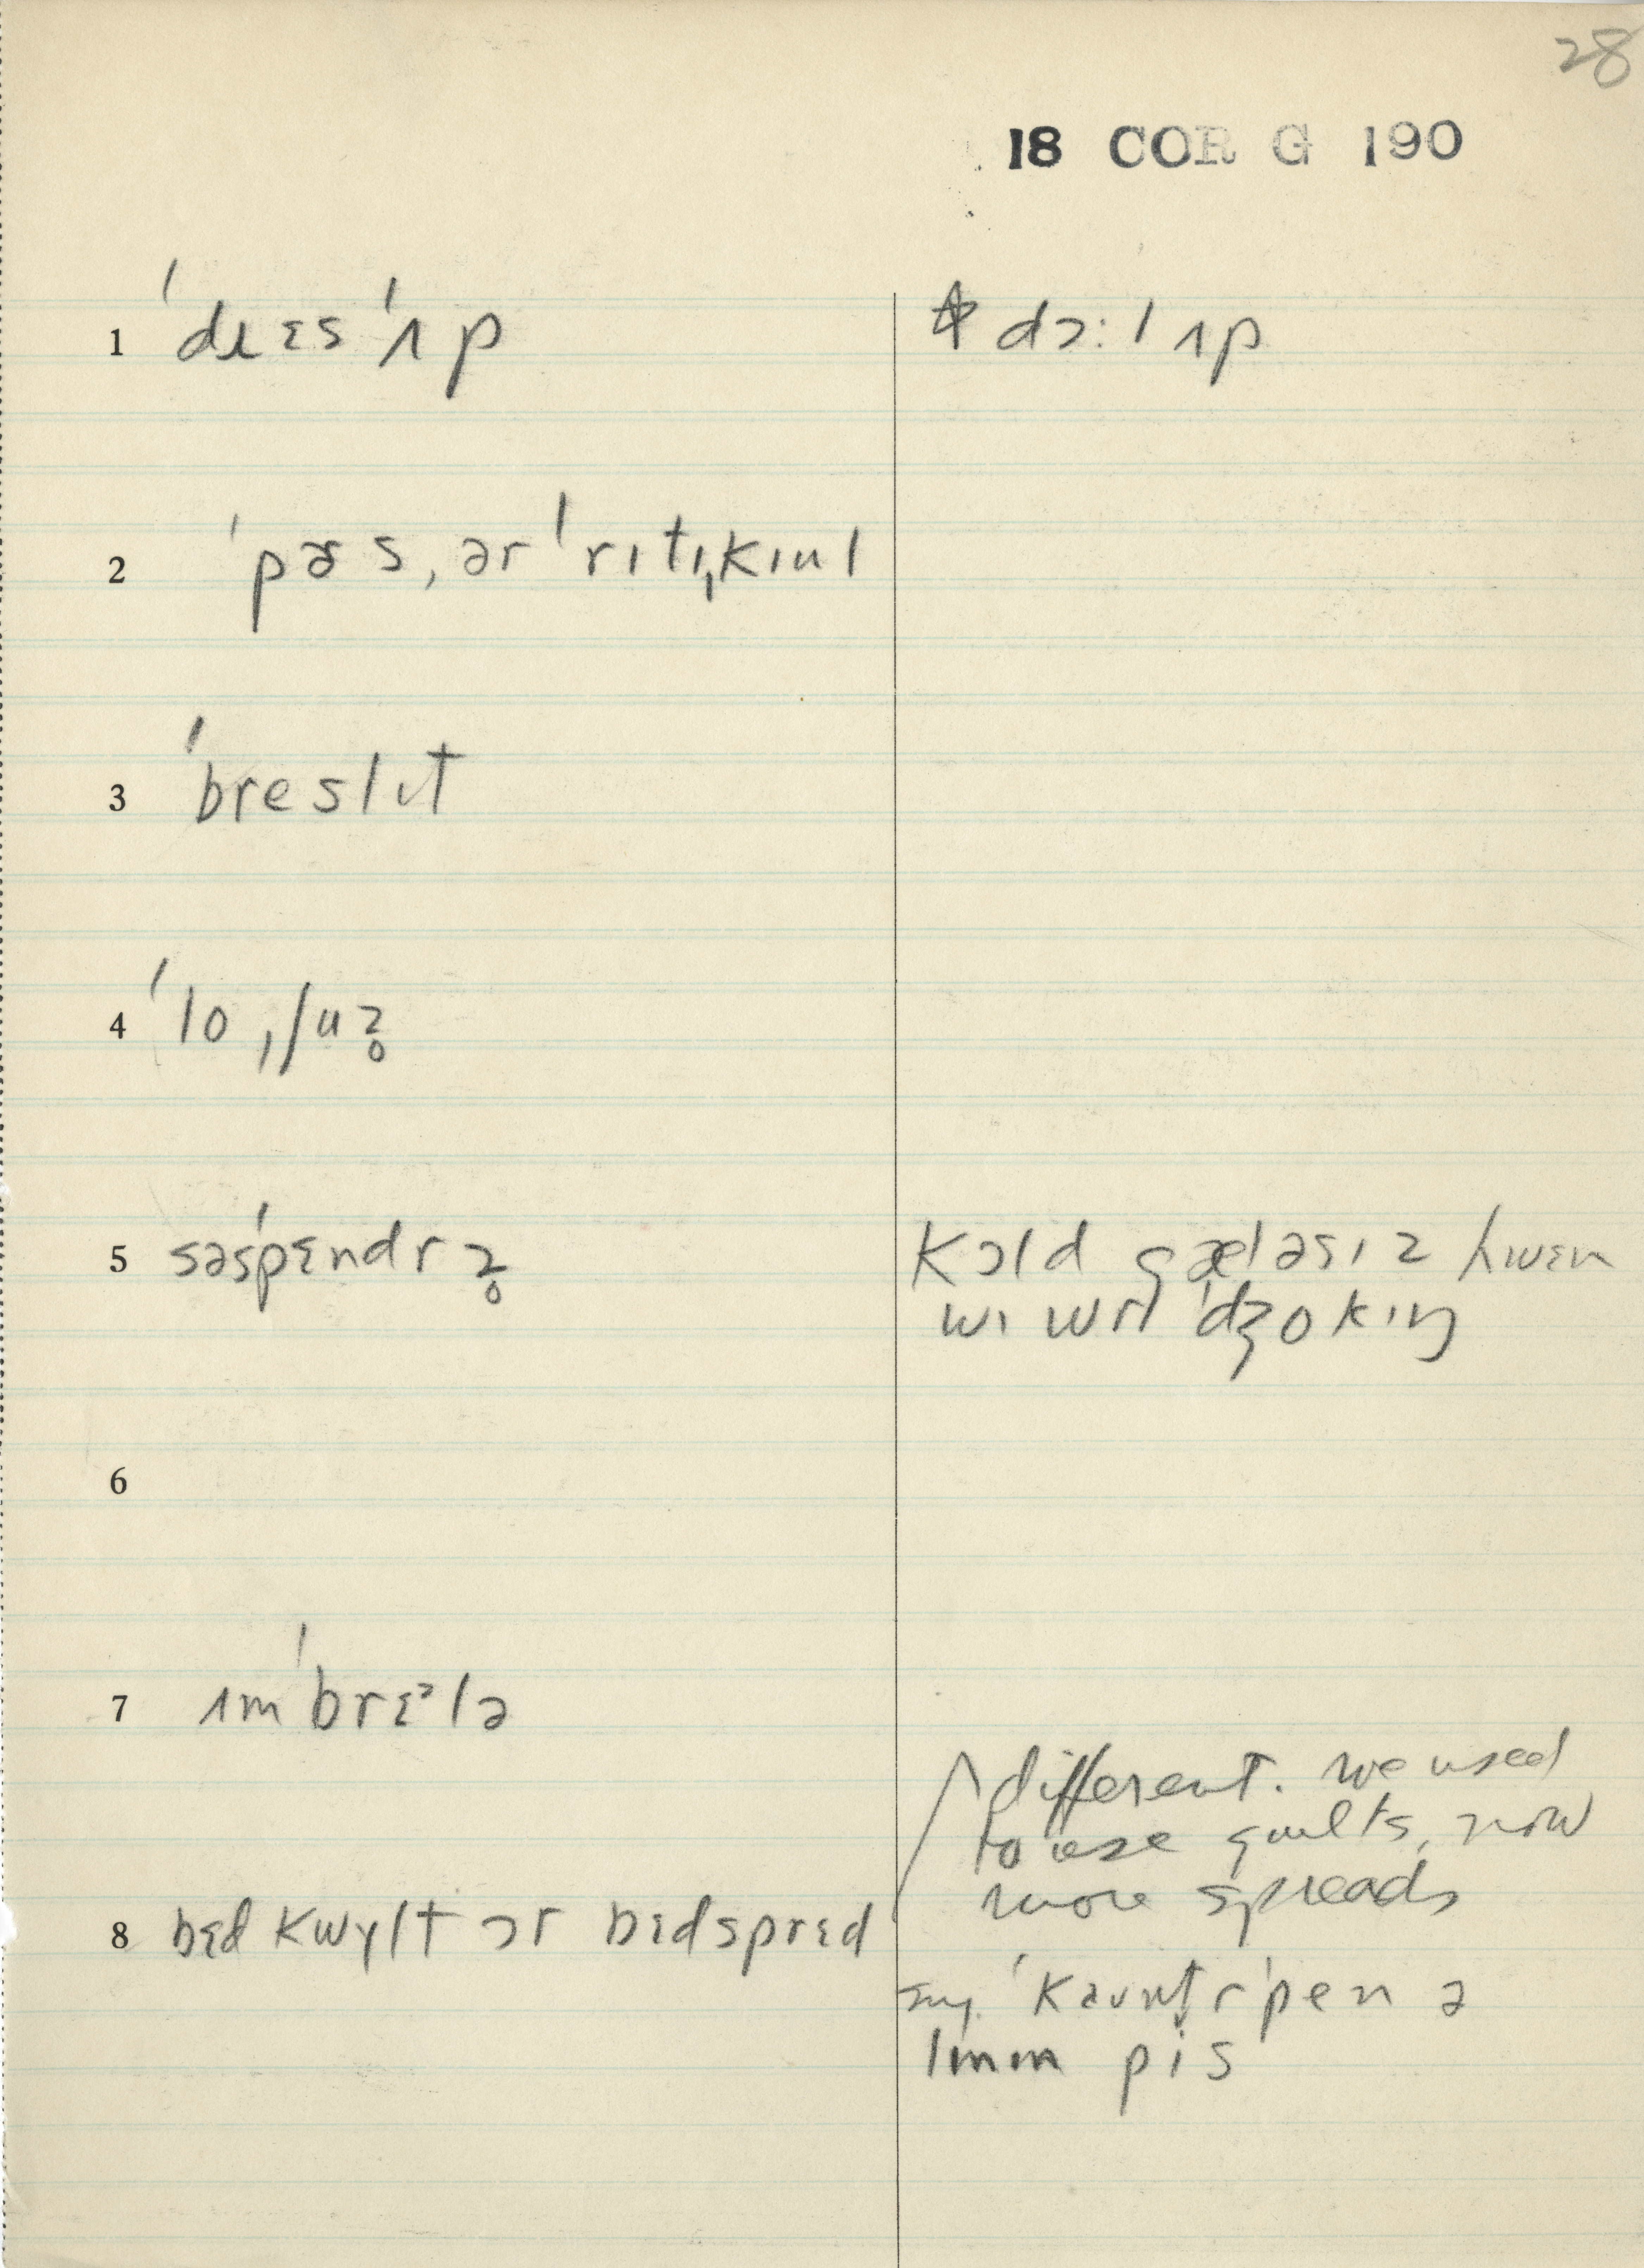 28
18 COR G 190
1 ˈdɹɛsˈʌp
* dɔ:l ʌp
2 ˈpɚs, ərˈrɪtɪˌkɪul
3 ˈbreslɪt
4
5 səsˈpɛndrz̥
kɔld gæləsɪz hwɛn
wɪ wr ˈdʒokɪŋ
6
7 ʌmˈbrɛᵊlə
8 bɛd kwɪlt ɔr bɛdsprɛd
different. we used
to use quilts, now
more spreads
ˈkaʊntrˈpen ə
pis